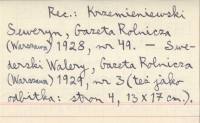 Rec.: Krzemieniewski
Seweryn, Gazeta Rolnicza
(Warszawa) 1928, nr 49. — Swe-
derski Walery, Gazeta Rolnicza
(Warszawa) 1929, nr 3 (też jako
odbitka: stron 4, 13 x 17 cm.).